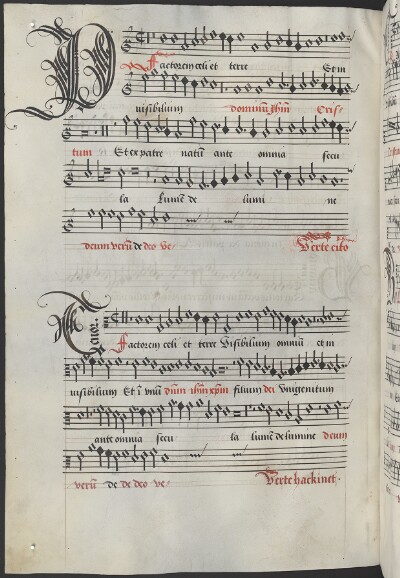 Factorem celi et terre Et in
visibilium dominū ihm̄ Cris-
tum Et ex patre natū ante omnia secu
la Lumē de lumi ne
deum verū de deo ve Verte cito
Tenor
Factorem celi et terre Visibilium omniū et in
visibilium Et ī vnū dn̄m ihm̄ xp̄m filium dei vnigenitum
ante omnia secu la lumē de lumine deum
verū de de deo ve